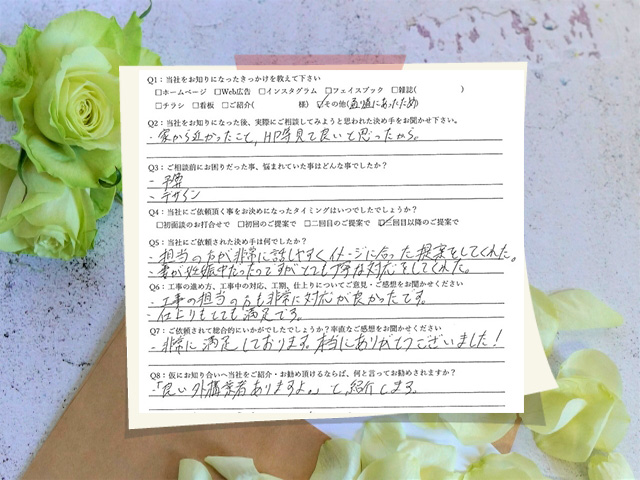 Q1：当社をお知りになったきっかけを教えて下さい
□ホームページ □Web広告 □インスタグラム □フェイスブック □雑誌( )
□チラシ □看板 □ご紹介( 様) ☑その他(通り道にあったため)
Q2：当社をお知りになった後、実際にご相談してみようと思われた決め手をお聞かせ下さい。
・家から近かったこと、HP等見て良いと思ったから。
Q3：ご相談前にお困りだった事、悩まれていた事はどんな事でしたか？
・予算
・デザイン
Q4：当社にご依頼頂く事をお決めになったタイミングはいつでしたでしょうか？
□初面談のお打合せで □初回のご提案で □二回目のご提案で ☑三回目以降のご提案で
Q5：当社にご依頼された決め手は何でしたか？
・担当の方が非常に話しやすくイメージに合った提案をしてくれた。
・妻が妊娠中だったのですがとても丁寧な対応をしてくれた。
Q6：工事の進め方、工事中の対応、工期、仕上りについてご意見・ご感想をお聞かせください
・工事の担当の方も非常に対応が良かったです。
・仕上りもとても満足です。
Q7：ご依頼されて総合的にいかがでしたでしょうか？率直なご感想をお聞かせください
・非常に満足しております。本当にありがとうございました！
Q8：仮にお知り合いへ当社をご紹介・お勧め頂けるならば、何と言ってお勧めされますか？
・「良い外構業者ありますよ。」と紹介します。